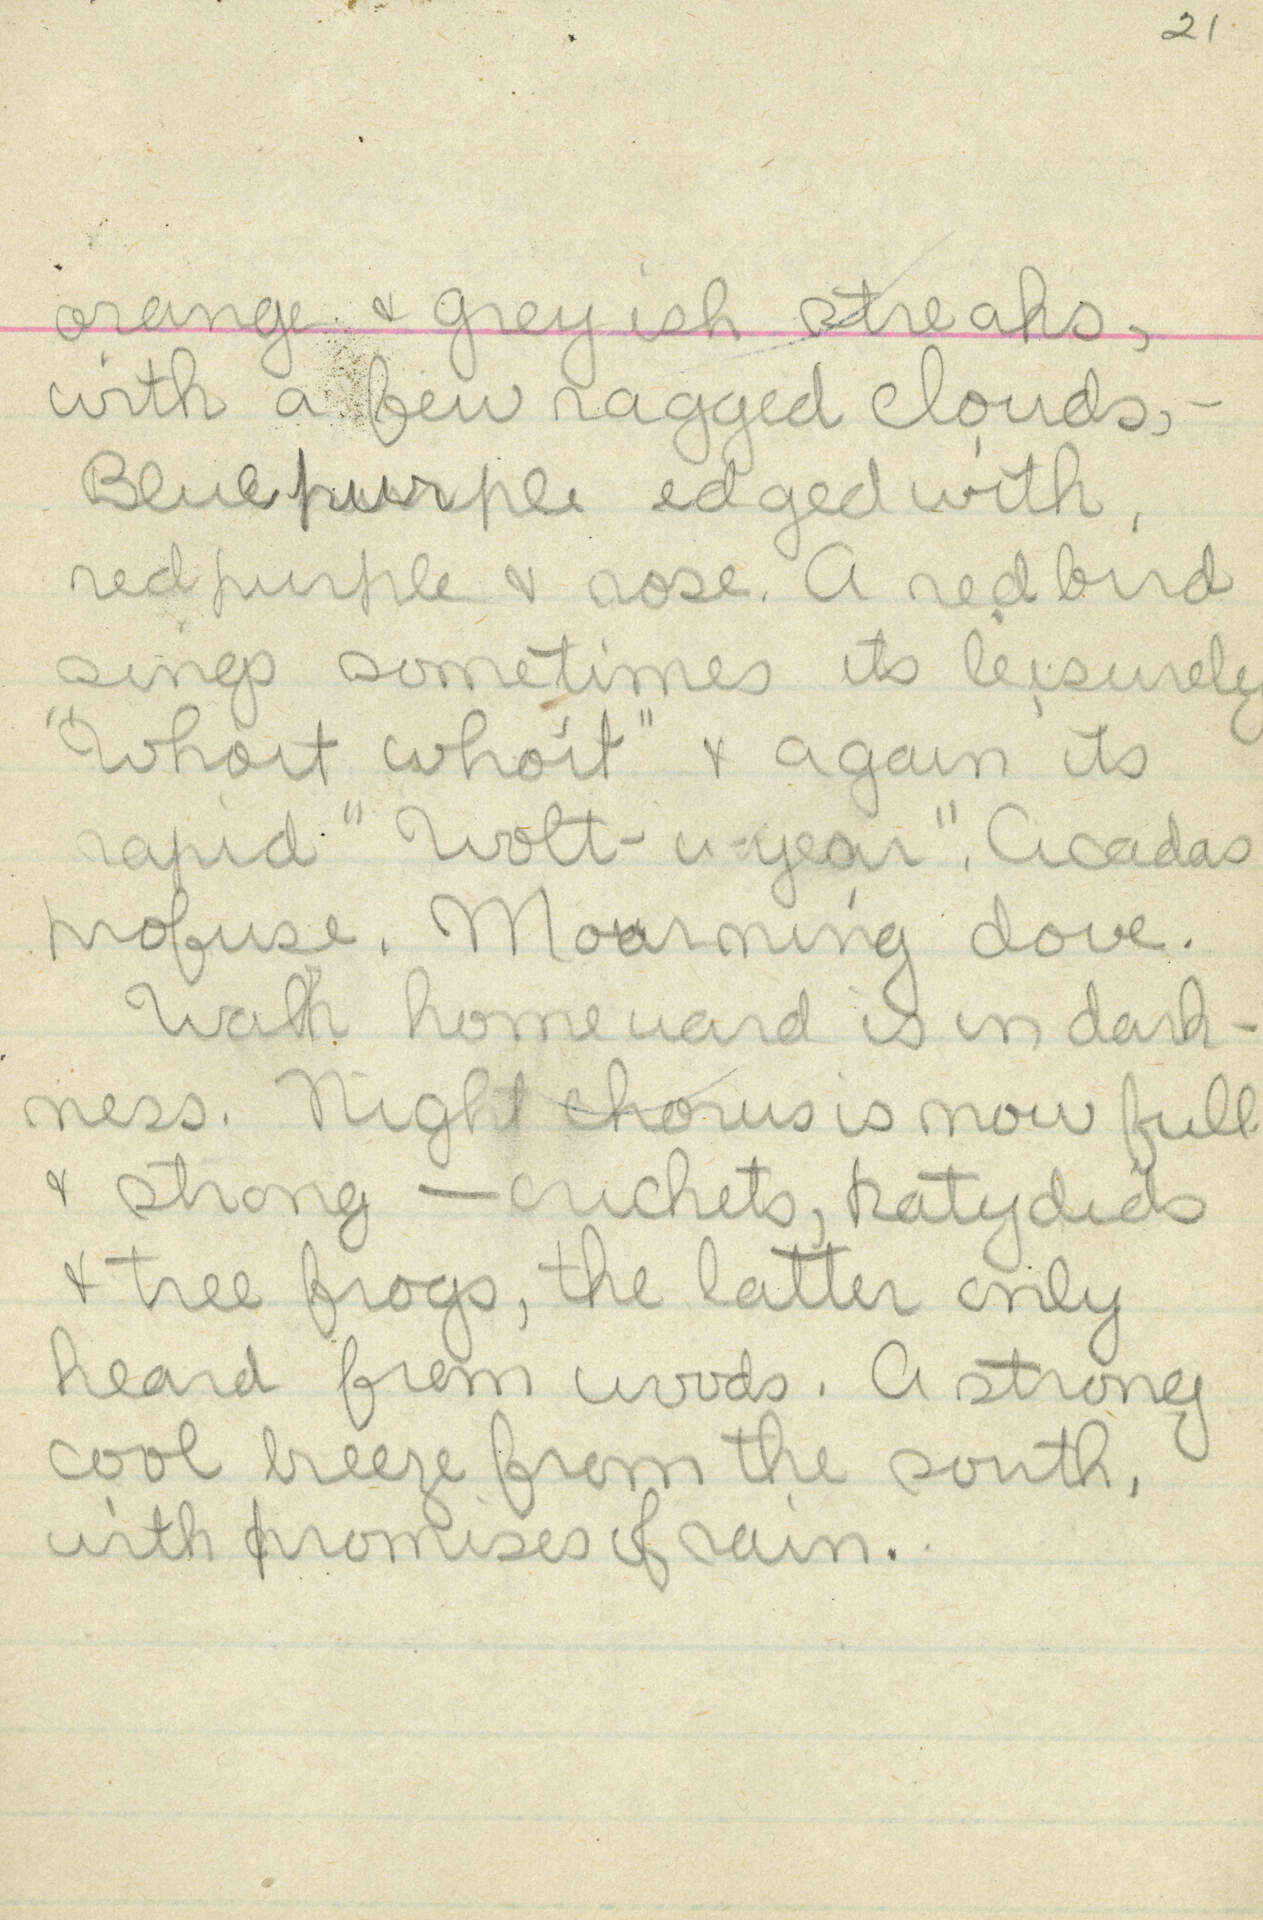 21
orange & greyish streaks,
with a few ragged clouds,-
Blue purple edged with
red purple & rose. A redbird
sings sometimes its leisurely
"Whoit whoit" & again its
rapid "Wolt-u-year". Cicadas
profuse. Mourning dove.
Walk homeward is in dark-
ness. Night chorus is now full
& strong — crickets, katydids
& tree frogs, the latter only
heard from woods. A strong
cool breeze from the south,
with promises of rain.